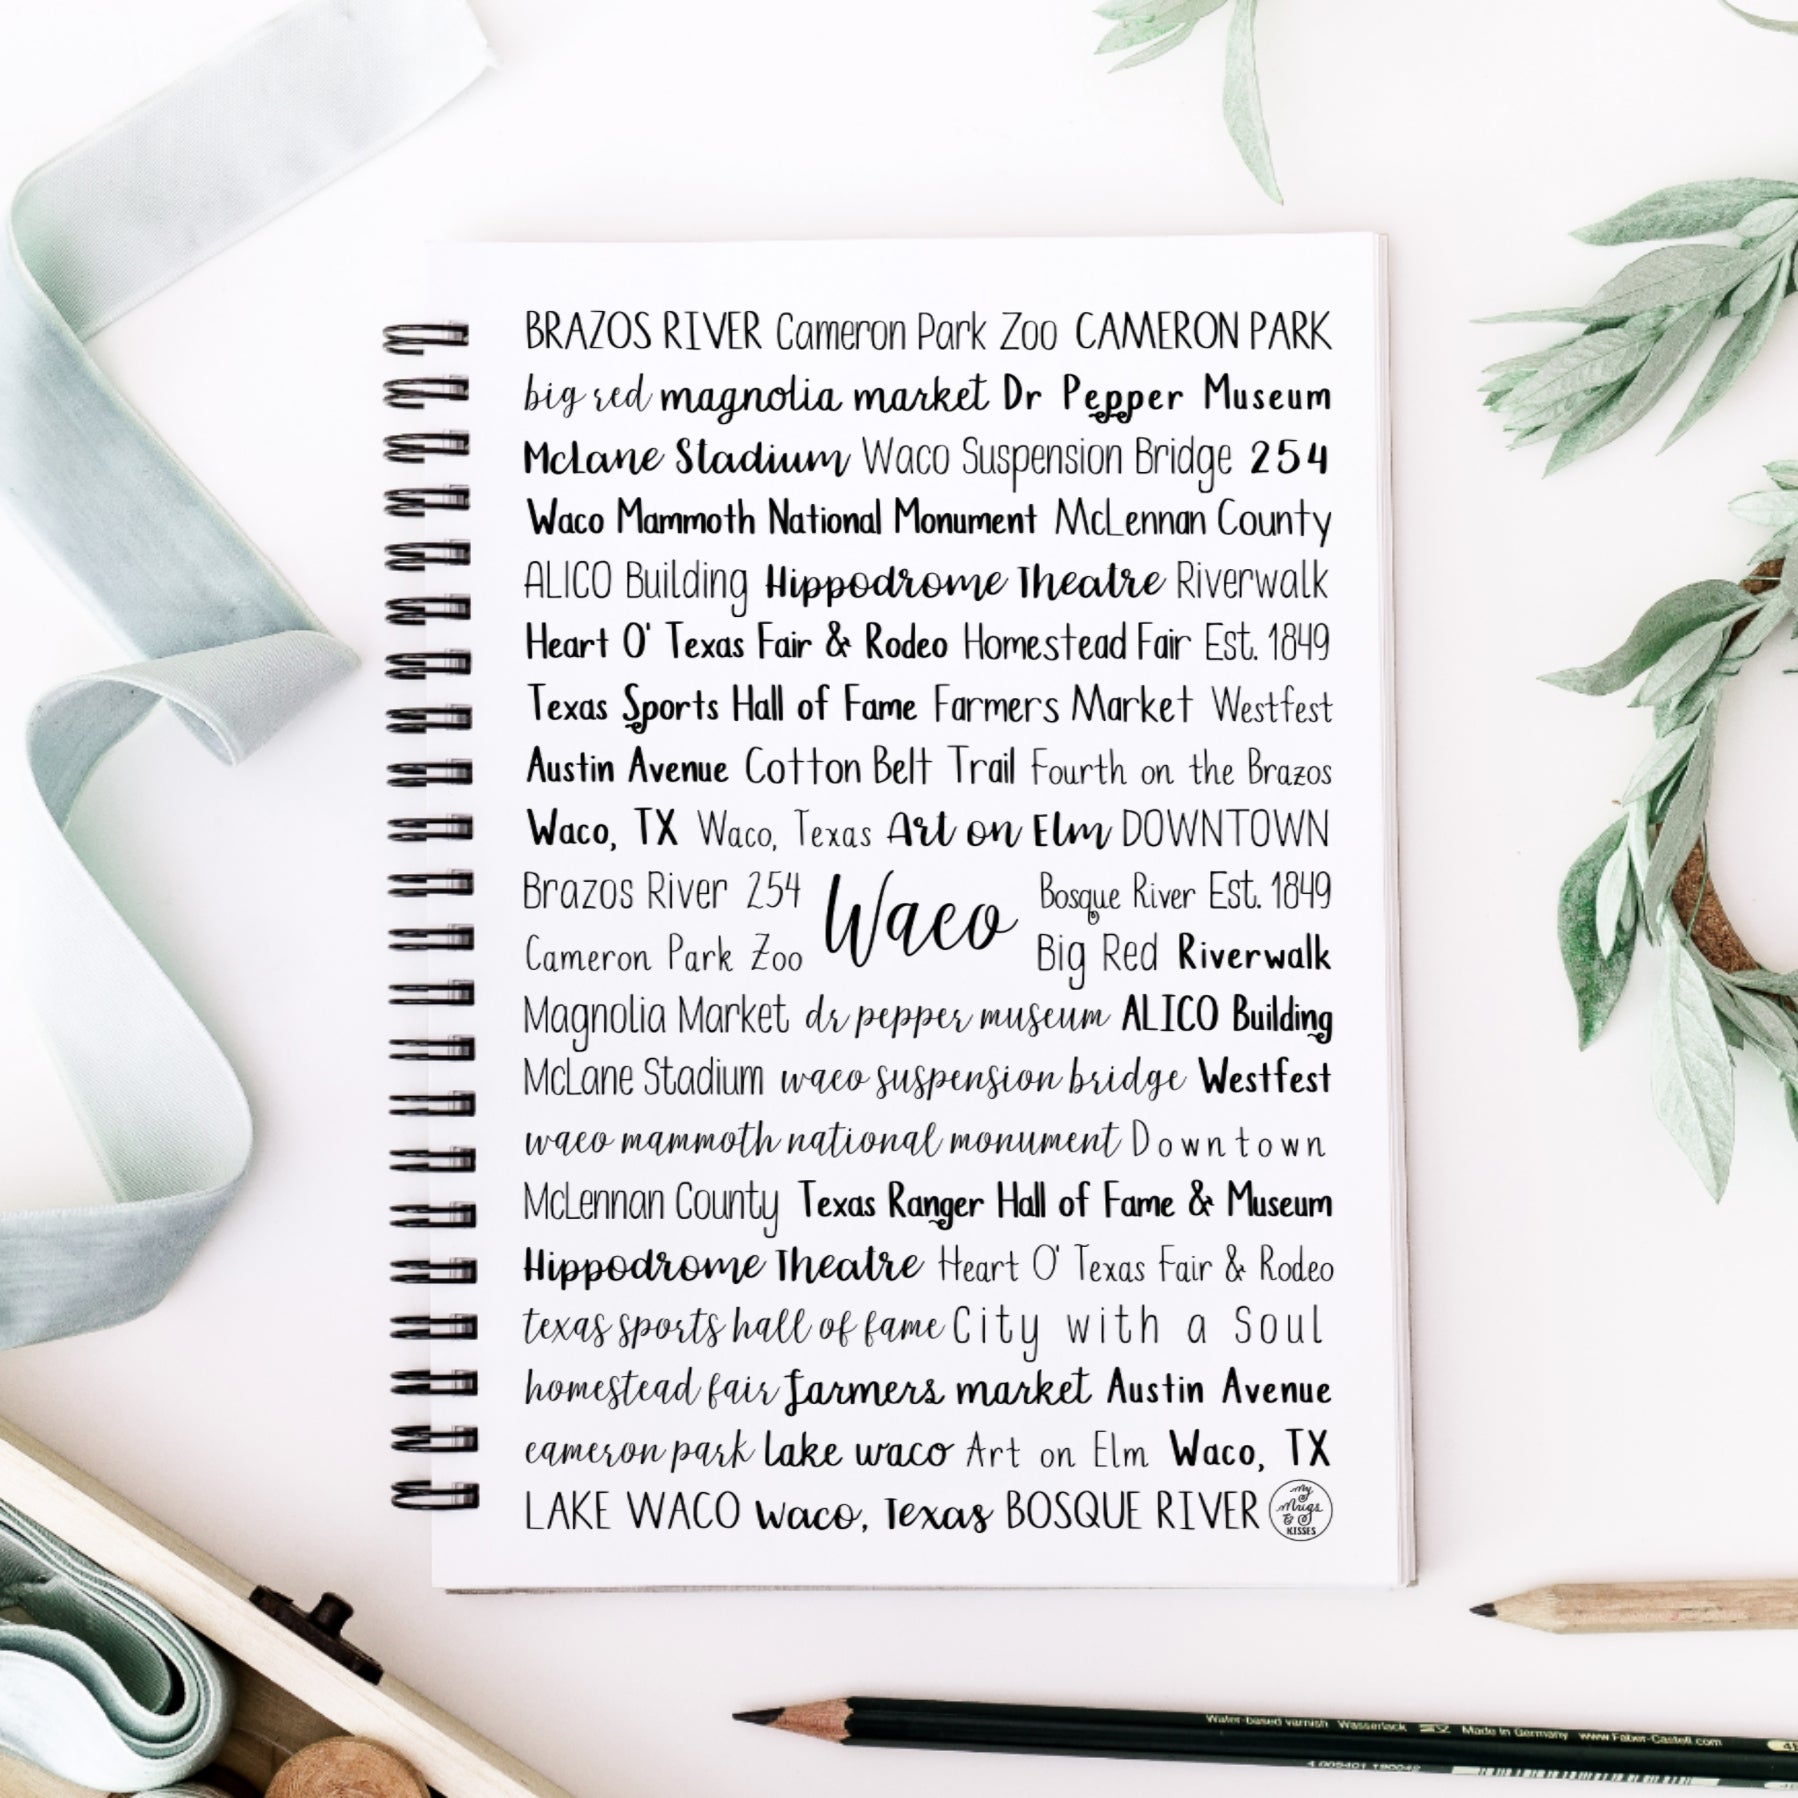 BRAZOS RIVER Cameron Park Zoo CAMERON PARK
big red magnolia market Dr Pepper Museum
McLane Stadium Waco Suspension Bridge 254
Waco Mammoth National Monument McLennan County
ALICO Building Hippodrome Theatre Riverwalk
Heart O' Texas Fair & Rodeo Homestead Fair Est. 1849
Texas Sports Hall of Fame Farmers Market Westfest
Austin Avenue Cotton Belt Trail Fourth on the Brazos
Waco, TX Waco, Texas Art on Elm DOWNTOWN
Brazos River 254 Bosque River Est. 1849
Waco
Cameron Park Zoo Big Red Riverwalk
Magnolia Market dr pepper museum ALICO Building
McLane Stadium waco suspension bridge Westfest
waco mammoth national monument Downtown
McLennan County Texas Ranger Hall of Fame & Museum
Hippodrome Theatre Heart O' Texas Fair & Rodeo
texas sports hall of fame City with a Soul
homestead fair farmers market Austin Avenue
cameron park lake waco Art on Elm Waco, TX
LAKE WACO Waco, Texas BOSQUE RIVER
My
Mugs
&
KISSES
Water-based varnish Wasserlack Made in Germany www.Faber-Castell.com
4 005401 190042